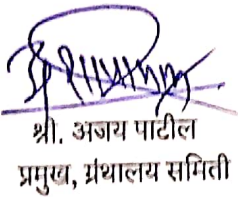 श्री. अजय पाटील
प्रमुख, ग्रंथालय समिती